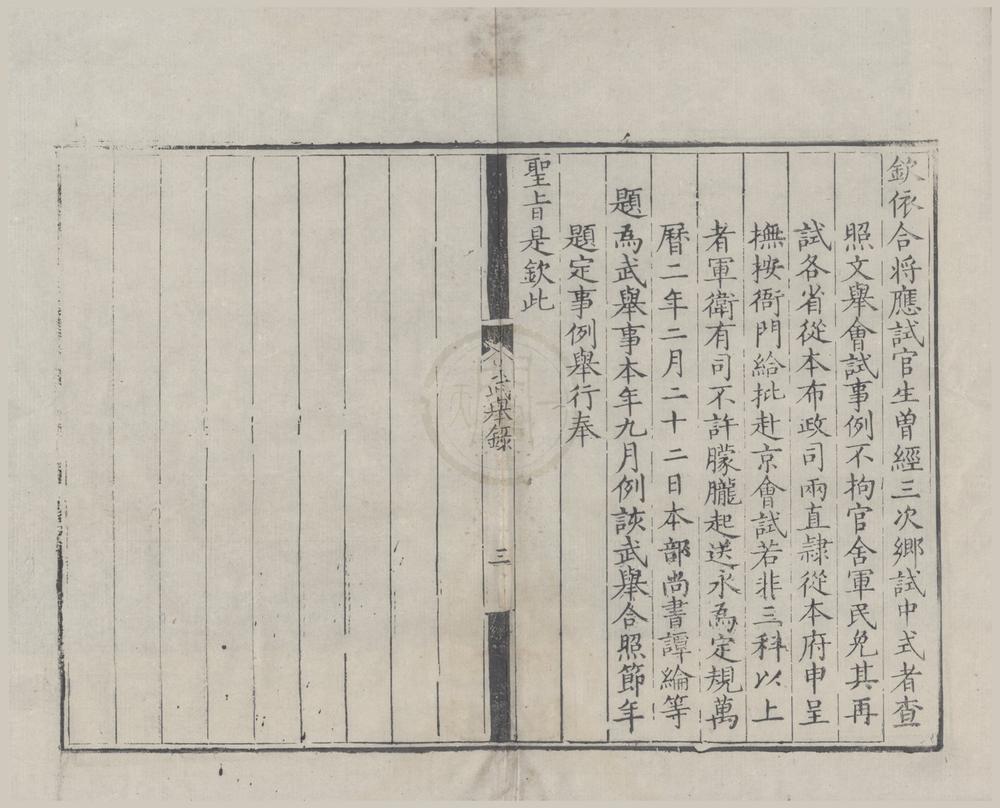 欽依合將應試官生曽經三次鄉試中式者查
照文舉會試事例不拘官舍軍民免其再
試各省從本布政司兩直隸從本府申呈
撫按衙門給批赴京會試若非三科以上
者軍衛有司不許朦朧起送永為定規萬
曆二年二月二十二日本部尚書譚綸等
題為武舉事本年九月例該武舉合照節年
題定事例舉行奉
聖旨是欽此
武舉錄
三